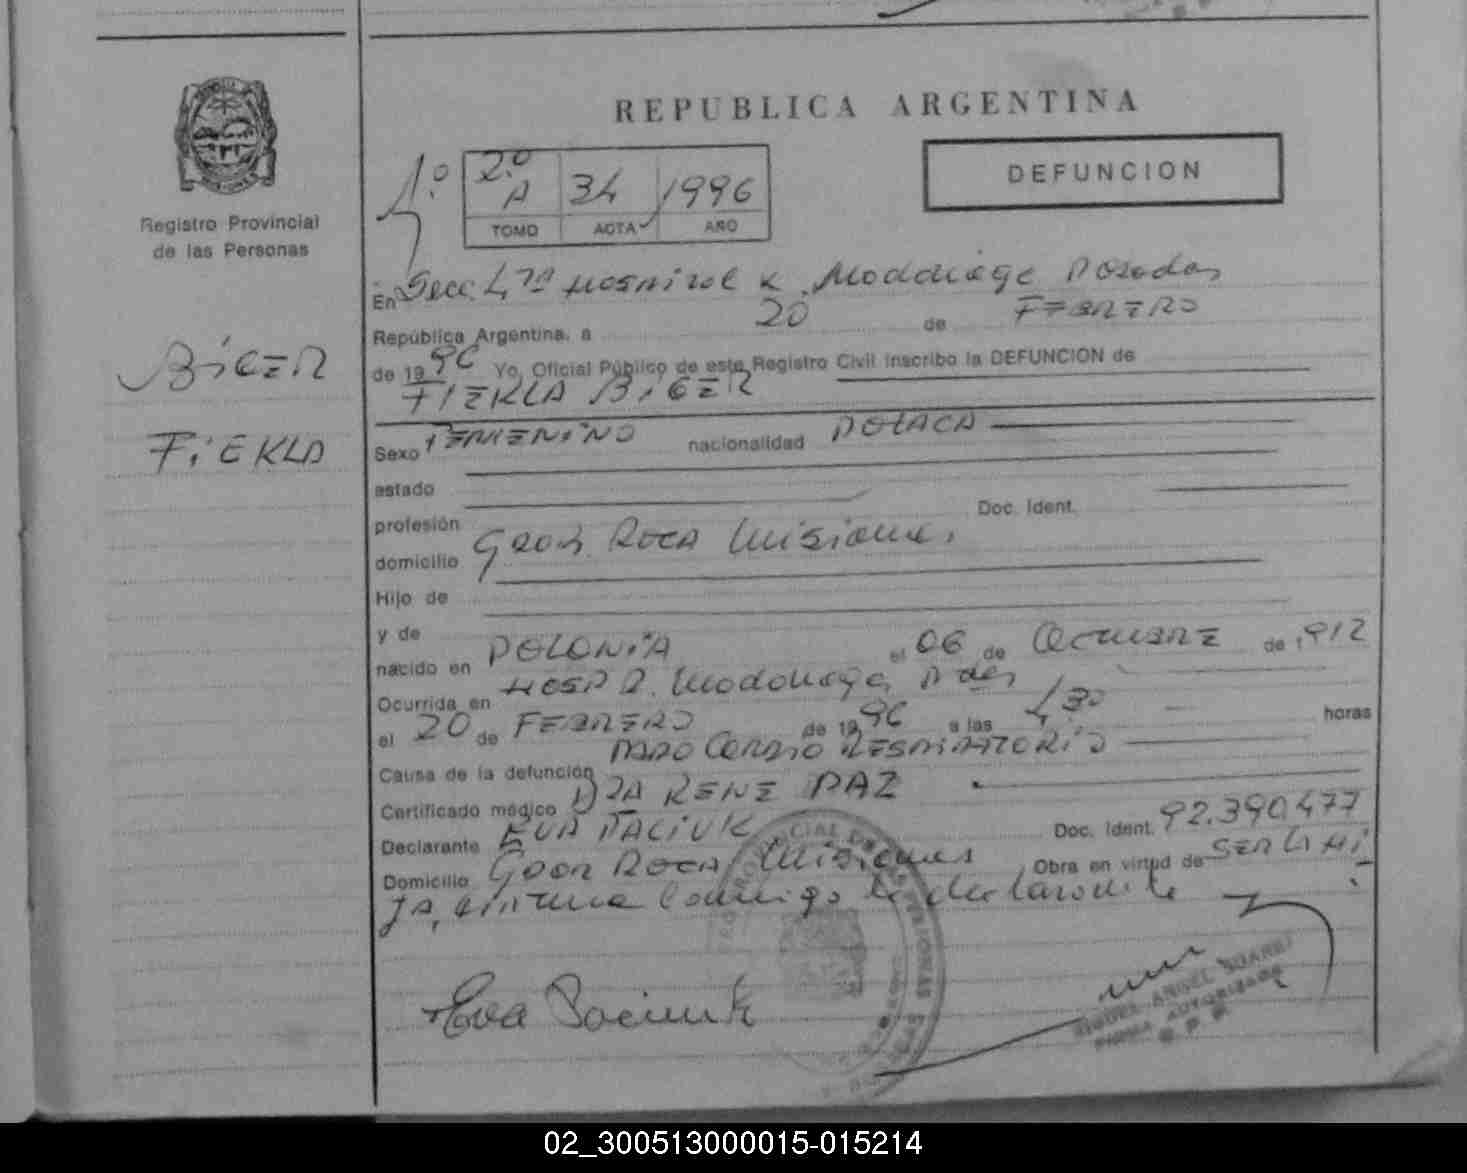 REPUBLICA ARGENTINA
DEFUNCION
2º A 34 1996
TOMO ACTA AÑO
Registro Provincial
de las Personas
En Secc. 4ta Hospital R. Madariaga Posadas
República Argentina, a 20 de FEBRERO
de 1996 Yo, Oficial Público de este Registro Civil inscribo la DEFUNCION de
FIEKLA BiGER
BiGER
FiEKLA
Sexo FEMENiNO nacionalidad POLACA
estado
profesión Doc. Ident.
domicilio Gdor. ROCA Misiones.
Hijo de
y de
nacido en POLONiA el 06 de OCTUBRE de 1912
Ocurrida en HOSP R. Madariaga, Pdas
el 20 de FEBRERO de 1996 a las 4,30 horas
Causa de la defunción PARO CARDIO RESPIRATORiO
Certificado médico DRA RENE PAZ
Declarante EVA PACIUK Doc. Ident. 92.390.477
Domicilio Gdor ROCA Misiones Obra en virtud de SER LA Hi
JA, firma conmigo la declarante
Eva Paciuk
MIGUEL ANGEL SUAREZ
FIRMA AUTORIZADA
R. P. P.
02_300513000015-015214